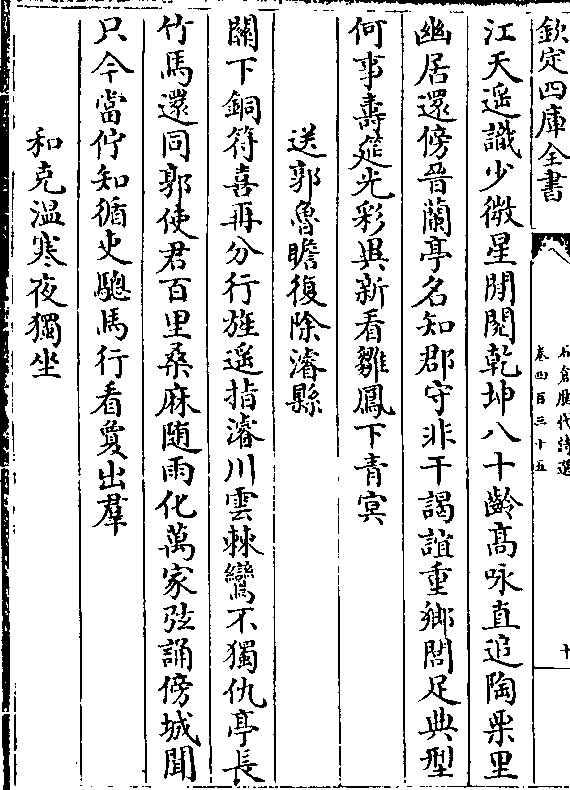 欽定四庫全書
石倉歷代詩選
卷四百三十五
十
江天遥識少微星閒閱乾坤八十齡髙咏直追陶栗里
幽居還傍晉蘭亭名知郡守非干謁誼重鄉閭足典型
何事壽筵光彩異新看雛鳳下青冥
送郭魯瞻復除濬縣
闗下銅符喜再分行旌遥指濬川雲棘鸞不獨仇亭長
竹馬還同郭使君百里桑麻随雨化萬家弦誦傍城聞
只今當佇知循吏驄馬行看夐出羣
和克温寒夜獨坐